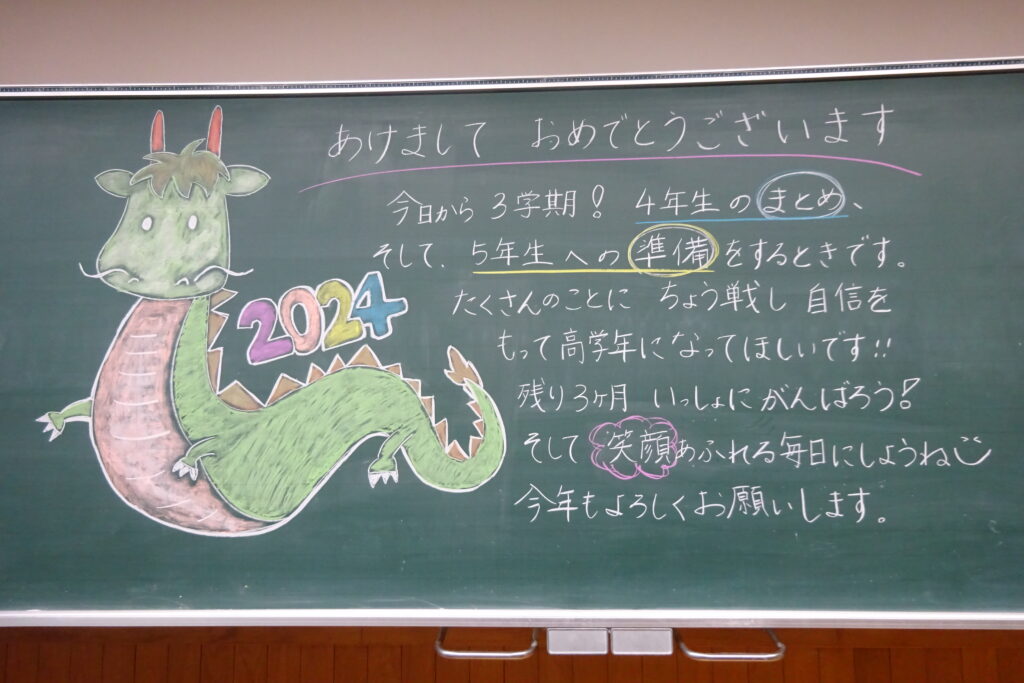 あけまして おめでとうございます
今日から3学期! 4年生のまとめ、
そして、5年生への準備をするときです。
2024
たくさんのことに ちょう戦し 自信を
もって高学年になってほしいです!!
残り3ヶ月 いっしょにがんばろう!
そして 笑顔あふれる毎日にしようね
今年もよろしくお願いします。